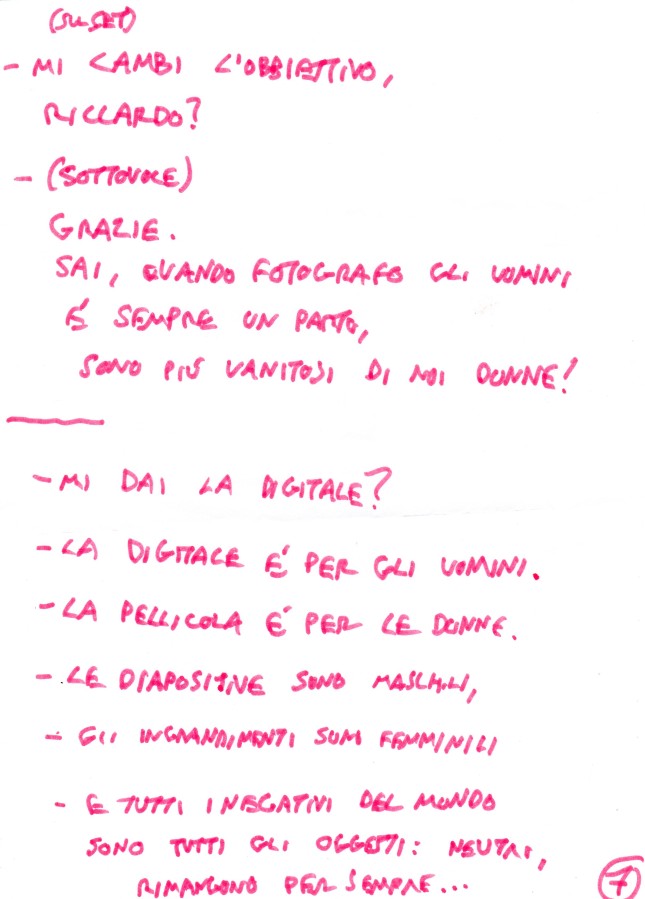 (SUL SET)
- MI CAMBI L'OBBIETTIVO,
RICCARDO?
- (SOTTOVOCE)
GRAZIE.
SAI, QUANDO FOTOGRAFO GLI UOMINI
É SEMPRE UN PARTO,
SONO PIÙ VANITOSI DI NOI DONNE!
- MI DAI LA DIGITALE?
- LA DIGITALE É PER GLI UOMINI.
- LA PELLICOLA É PER LE DONNE.
- LE DIAPOSITIVE SONO MASCHILI,
- GLI INGRANDIMENTI SONO FEMMINILI
- E TUTTI I NEGATIVI DEL MONDO
SONO TUTTI GLI OGGETTI: NEUTRI,
RIMANGONO PER SEMPRE...
7